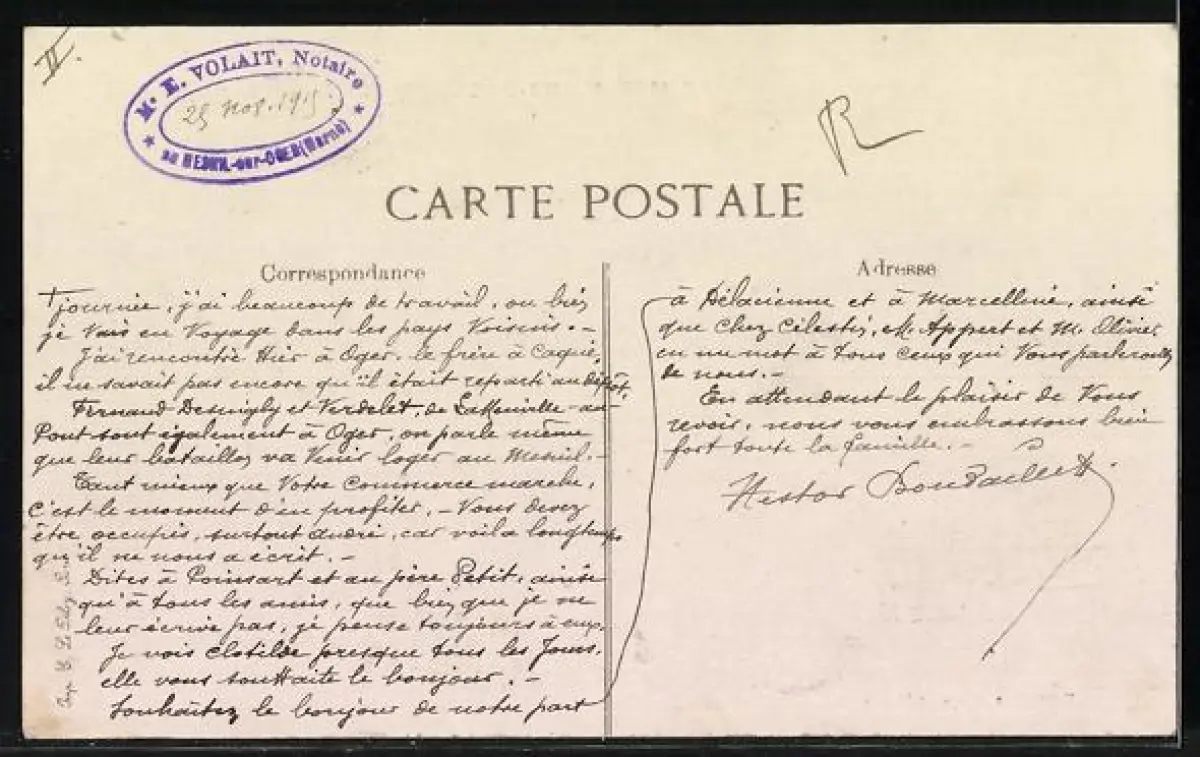 II.
Mᵉ E. VOLAIT, Notaire
25 Nov. 1915
au MESNIL-sur-OGER (Marne)
R
CARTE POSTALE
Correspondance
journée, j'ai beaucoup de travail, ou bien
je vais en voyage dans les pays voisins. -
J'ai rencontré Hier à Oger, le frère à Caqué,
il ne savait pas encore qu'il était reparti au dépôt,
Fernand et Verdelet, de au-
Pont sont également à Oger, on parle même
que leur bataillon va venir loger au Mesnil. -
Tant mieux que votre commerce marche,
c'est le moment d'en profiter, - Vous devez
être occupés, surtout andré, car voila longtemps
qu'il ne nous a écrit. -
Dites à Poinsart et au père Petit, ainsi
qu'à tous les amis, que bien que je ne
leur écrive pas, je pense toujours à eux.
Je vois Clotilde presque tous les Jours,
elle vous souhaite le bonjour. -
Souhaitez le bonjour de notre part
Adresse
à et à Marcelline, ainsi
que chez Célestin, M. Appert et M. Olivier
en un mot à tous ceux qui Vous parleront
de nous. -
En attendant le plaisir de Vous
revoir, nous vous embrassons bien
fort toute la famille. -
Nestor